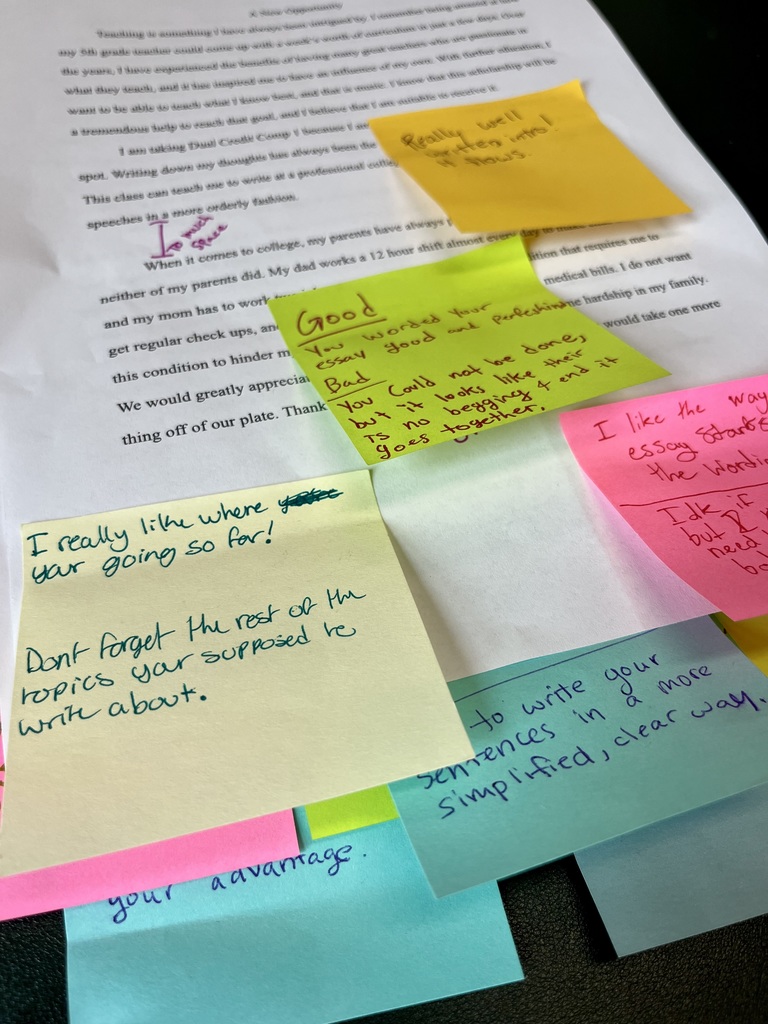 A New Opportunity
Teaching is something I have always been intrigued by. I remember being around
my 5th grade teacher could come up with a week's worth of curriculum in just a few days. Over
the years, I have experienced the benefits of having many great teachers who are passionate in
what they teach, and it has inspired me to have an influence of my own. With further education, I
want to be able to teach what I know best, and that is music. I know that this scholarship will be
a tremendous help to reach that goal, and I believe that I am suitable to receive it.
I am taking Dual Credit Comp I because I
spot. Writing down my thoughts has always been the
This class can teach me to write at a professional
speeches in a more orderly fashion.
Really well
written intro!
it flows.
to much
space
When it comes to college, my parents have always
neither of my parents did. My dad works a 12 hour shift almost every day to
and my mom has to work
that requires me to
get regular check ups, and
medical bills. I do not want
this condition to hinder
hardship in my family.
We would greatly
would take one more
thing off of our plate. Thank
Good
You worded your
essay good and
Bad
You could not be done,
but it looks like their
is no begging & end it
goes together.
I like the way
essay starts
the
Idk if
but I
need
I really like where
your going so far!
Dont forget the rest of the
topics your supposed to
write about.
to write your
sentences in a more
simplified, clear way.
your advantage.